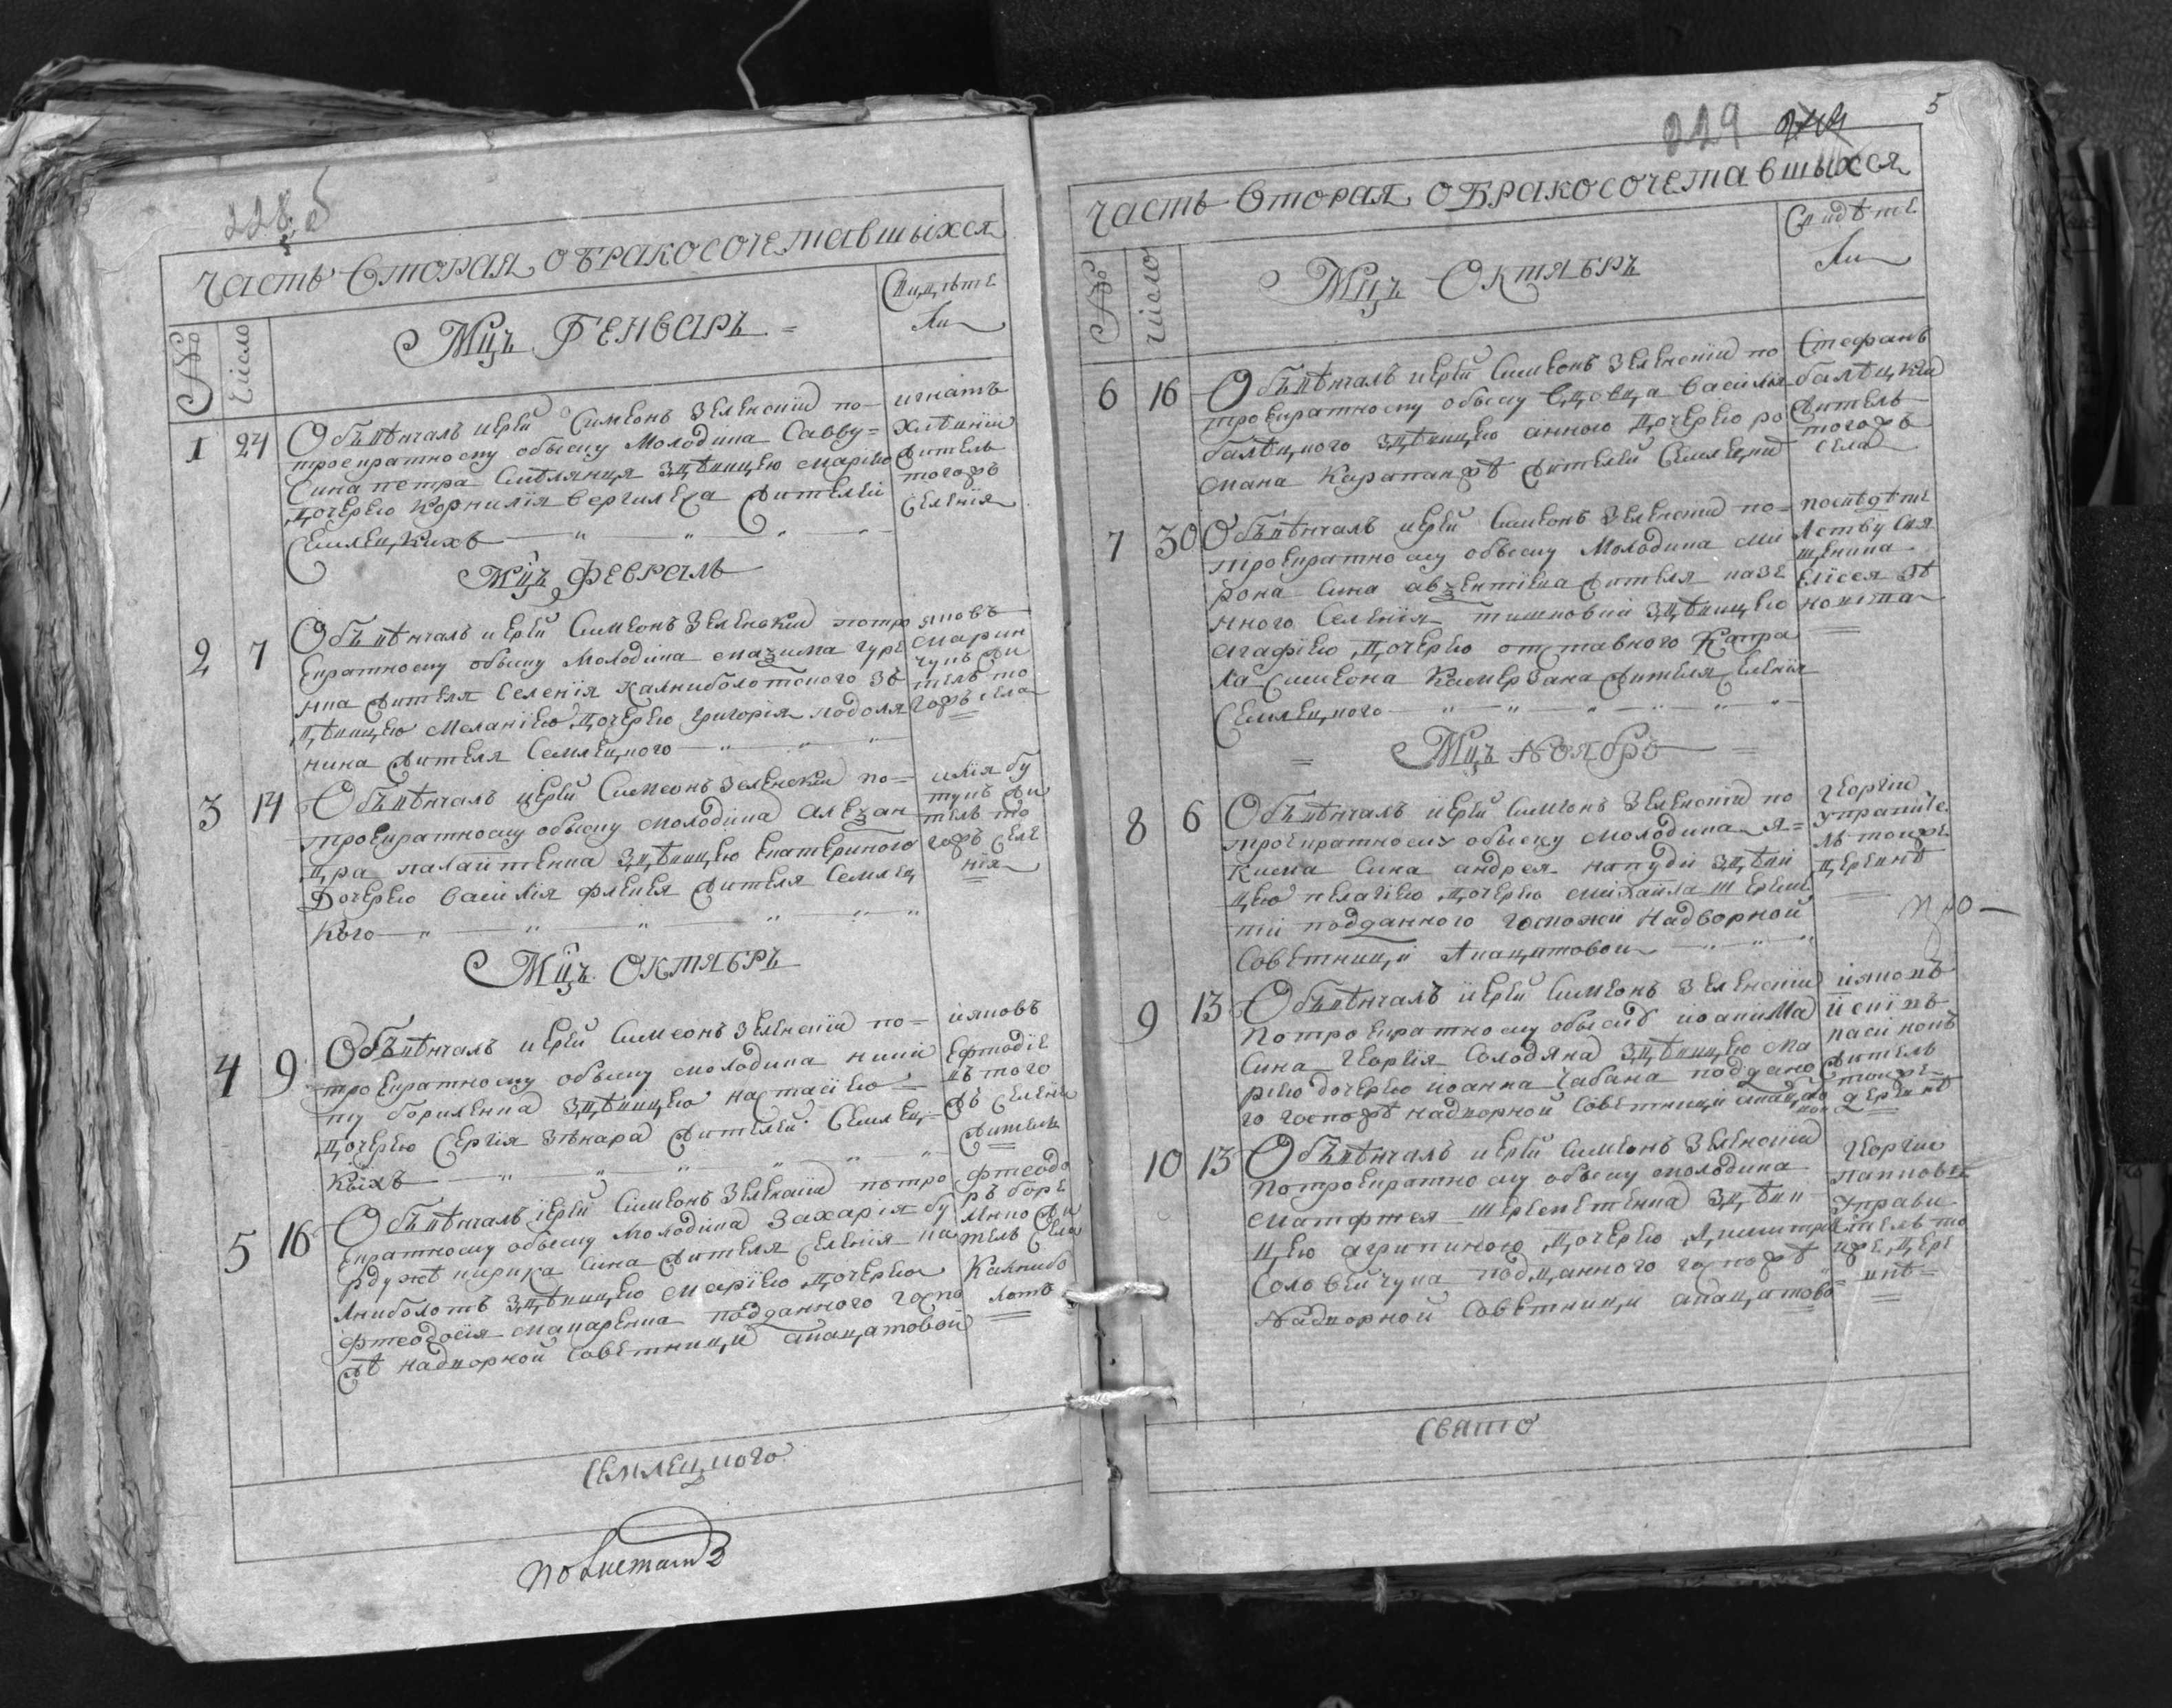 228 об
часть вторая о бракосочетавшихся
№
число
Мцъ Генварь
Свидѣте
ли
1 24 Объвѣнчалъ иерей Симеонъ Зеленский по-
троекратному обыску Молодика Савву
Сина петра Сивлянця здѣвицею мариею
дочерею Корнилия вергилеса жителей
Семлецкихъ
игнатъ
житель
тогожъ
Селения
Мцъ февраль
2 7 Объвѣнчалъ иерей Симеонъ Зеленский потро
екратному обыску Молодика максима гуре
нка жителя Селения Калниболотского здѣ
вицею меланиею дочерею григория подоля
нина жителя Семлецкого
яковъ
марин
чукъ жи
тель то
гожъ села
3 14 Объвѣнчалъ иерей Симеонъ Зеленский по-
троекратному обыску молодика алексан
дра палайтенка здѣвицею екатериною
Дочерею василия жителя Семлец
кого
илия бу
тукъ жи
тель то
гожъ селе
ния
Мцъ Октябрь
4 9 Объвѣнчалъ иерей Симеонъ Зеленский по-
троекратному обыску молодика ники
ту бориленка здѣвицею настасиею
дочерею Сергия Зѣнкара жителей Семлец
кихъ
ияковъ
того
жъ селения
житель
5 16 Объвѣнчалъ иерей Симеонъ Зеленский потро
екратному обыску Молодика Захария бу
кирика Сина жителя Селения ка
лниболотъ здѣвицею мариею дочерею
фтеодосия макаренка подданного госпо
жѣ надворной советници апацатовой
фтеодо
ръ боре
жи
тель села
Калнибо
лотъ
Семлецкого
по Листамъ
229
5
часть вторая о бракосочетавшихся
№
число
Мцъ Октябрь
Свидѣте
ли
6 16 Объвѣнчалъ иерей Симеонъ Зеленский по
троекратному обыску вдовца василия
балѣцкого здѣвицею анною дочерею ро
мана Карапанжѣ жителей Семлецки
Стефанъ
балѣцкий
житель
тогожъ
села
7 30 Объвѣнчалъ иерей Симеонъ Зеленский по-
троекратному обыску Молодика ми
рона Сина авзентиева жителя казе
нного Селения тишковки здѣвицею
агафиею дочерею отставного Капра
ла Симеона Камерзана жителя Селения
Семлецкого
посвѣдѣте
лству свя
щеника
елисея
Мцъ Ноябръ
8 6 Объвѣнчалъ иерей Симеонъ Зеленский по
троекратному обыску молодика я-
кима Сина андрея напуди здѣви
цею пелагиею дочерею михайла шереме
ти подданного госпожи Надворной
Советници апацатовой
Георгий
управите
ль тойже
деревнѣ
9 13 Объвѣнчалъ иерей Симеонъ Зеленский
Потроекратному обыску иоакима
Сина Георгия Солодяна здѣвицею ма
риею дочерею иоанна Чабана поддано
го госпожѣ надворной Советници апацато
вой
ияковъ
житель
тойже
деревнѣ
10 13 Объвѣнчалъ иерей Симеонъ Зеленский
Потроекратному обыску молодика
матфтея шереметенка здѣви
цею агрипиною дочерею димитрия
Соловейчука подданного госпожѣ
Надворной Советници апацатово
Георгий
Управи
тель то
йже дере
внѣ
Про
Свято